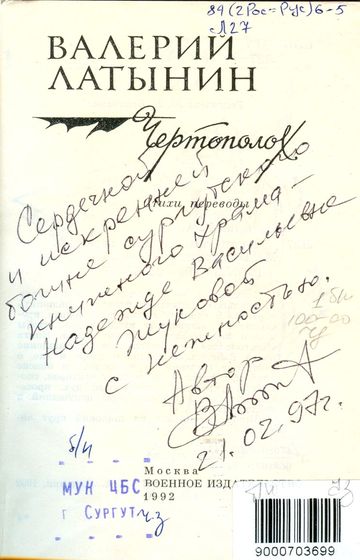 84(2Рос=Рус)6-5
Л27
ВАЛЕРИЙ
ЛАТЫНИН
Чертополох
Стихи, переводы
Сердечной
и искренней
богине сургутского
книжного храма –
Надежде Васильевне
Жуковой
с нежностью.
Автор
21.02.97г.
б/н
Москва
ВОЕННОЕ ИЗДАТ
1992
МУК ЦБС
г Сургут
ч.з
9000703699